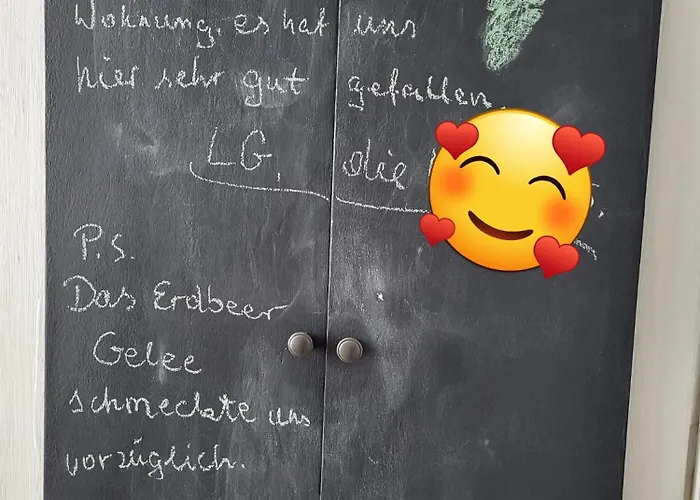 Wohnung, es hat uns
hier sehr gut gefallen,
LG, die
P.S.
Das Erdbeer
Gelee
schmeckte uns
vorzüglich.